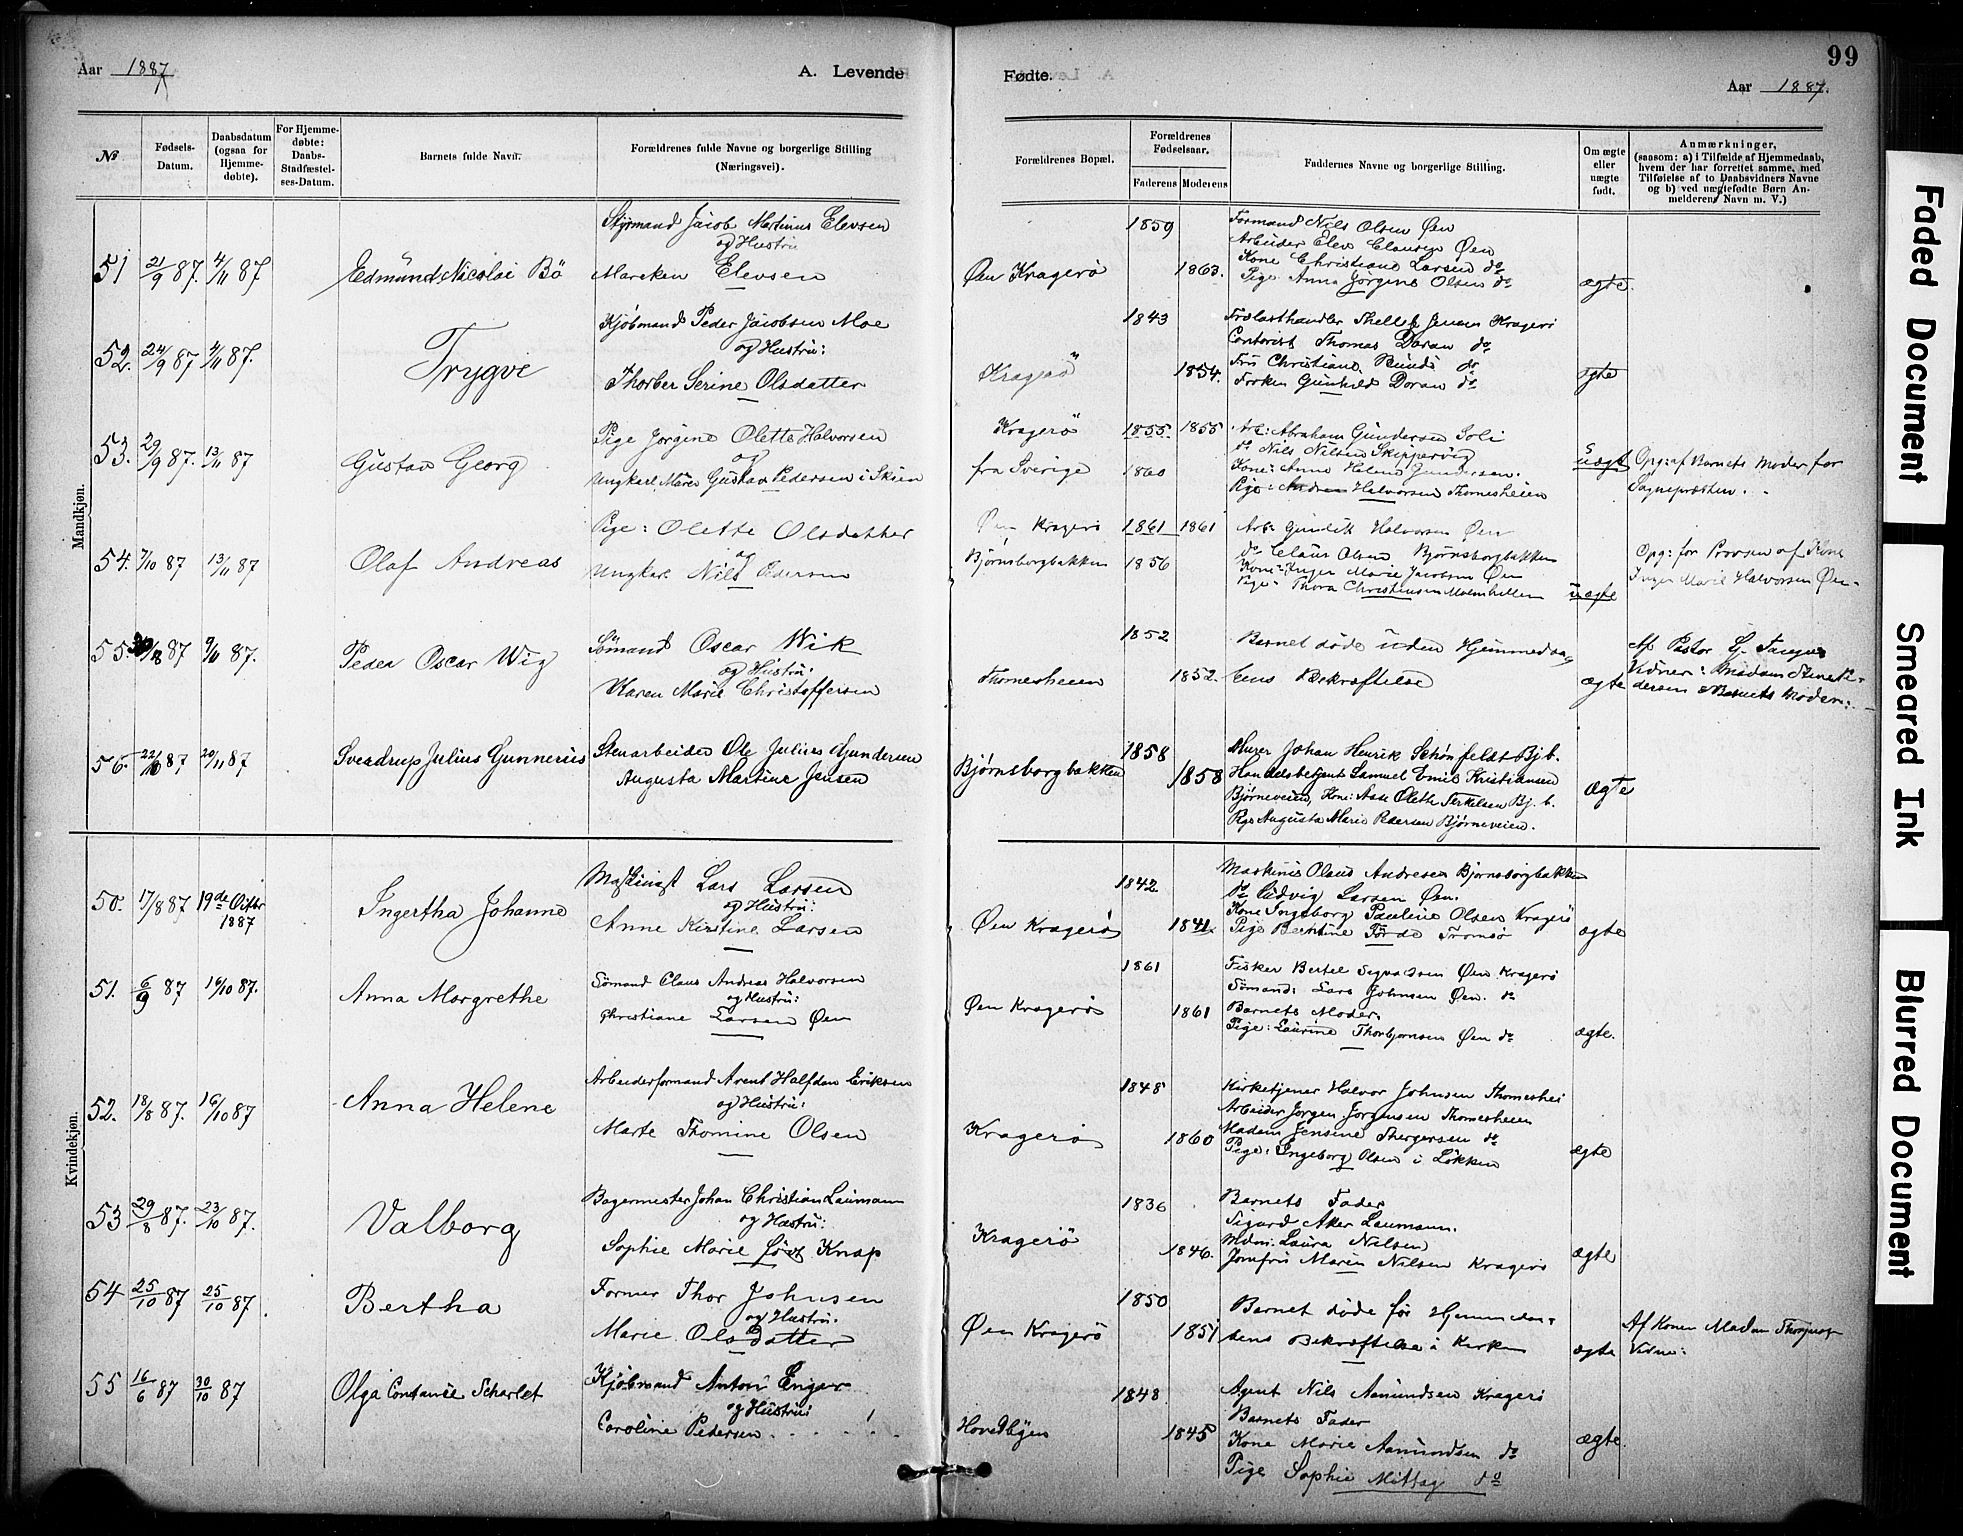 99
Aar 1887
A. Levende
Fødte.
Aar 1887.
№
Fødsels-Datum.
Daabsdatum (ogsaa for Hjemme-døbte).
For Hjemme-døbte: Daabs-Stadfæstel-ses-Datum.
Barnets fulde Navn.
Forældrenes fulde Navne og borgerlige Stilling (Næringsvei).
Forældrenes Bopæl.
Forældrenes Fødselsaar.
Faderens
Moderens
Faddernes Navne og borgerlige Stilling.
Om ægte eller uægte født.
Anmærkninger,
(saasom: a) i Tilfælde af Hjemmedaab,
hvem der har forrettet samme, med
Tilføielse af to Daabsvidners Navne
og b) ved uægtefødte Børn An-
melderens Navn m. V.)
Mandkjøn.
Styrmand Jacob Martinus Elevsen
og Hustru
51 21/9 87. 4/11 87 Edmund Nicolai Bö Mareken Elevsen
Øen Kragerö 1859 1863.
Formand Nils Olsen Øen
Arbeider Elev Clausen Øen
Kone Christiane Larsen do
Pige Anna Jörgine Olsen do
ægte.
Kjöbmand Peder Jacobsen Moe
og Hustru:
52. 24/9 87 4/11 87. Trygve
Thorber Serine Olsdatter
Kragerö 1843 1854.
Thellef Jensen Kragerö
Contorist Thomas Doran do
Fru Christiane do
Fröken Gunhild Doran do
ægte
Pige Jörgine Olette Halvorsen
og
53. 29/9 87. 13/11 87 Gustav Georg
Ungkarl Gustav Pedersen i Skien
Kragerö 1855. 1855
fra Sverige 1860
Arb: Abraham Gundersen Soli
do Nils Nilsen Skippervig
Kone: Anne Helene Gundersen.
Pige: Andrea Halvorsen Thomesheien
uægt
Opg: af Barnets Moder for
Sognepræsten.
Pige: Olette Olsdatter
og
54. 7/10 87 13/11 87 Olaf Andreas
Ungkarl Nils Pedersen
Øen Kragerö 1861 1861
Bjørnsborgbakken 1856
Arb: Gundik Halvorsen Øen
do Claus Olsen Bjørnsborgbakken
Kone: Inger Marie Jacobsen Øen
Pige: Thora Christensen Malmhellen
uægte
Opg: for Provsen af Kone
Inger Marie Halvorsen Øen
55. 87 87. Peder Oscar Wig
Sömand Oscar Wik
og Hustru:
Karen Marie Christoffersen
Thomesheien 1852 1852.
Barnet döde uden Hjemmedaa-
bens Bekræftelse
ægte
Af Pastor
Vidner: Madam Pe-
dersen & Barnets Moder:
56. 22/10 87 20/11 87 Sverdrup Julius Gunnerius
Stenarbeider Ole Julius Gundersen
Augusta Martine Jensen
Bjørnsborgbakken 1858 1858
Murer Johan Henrik Schönfeldt Bjb.
Handelsbetjent Samuel Emil Kristiansen
Bjørneveien, Kone: Aase Olette Terkelsen Bj. b.
Pige Augusta Marie Pedersen Bjørneveien.
ægte
Kvindekjøn.
50. 17/8 87 19de Octbr 1887 Ingertha Johanne
Maskinist Lars Larsen
og Hustru:
Anne Kirstine Larsen
Øen Kragerö 1842 1841.
Maskinist Olaus Andresen Bjørnsborgbakken
do Ludvig Larsen Øen.
Kone Ingeborg Pauline Olsen Kragerö
Pige Berthine Förde Tromsö
ægte
51. 6/9 87 16/10 87. Anna Margrethe
Sömand Claus Andreas Halvorsen
og Hustru:
Christiane Larsen Øen
Øen Kragerö 1861 1861
Fisker Bertel Øen Kragerö
Sömand: Lars Johnsen Øen. do
Barnets Moder.
Pige: Laurine Thorbjornsen Øen do
ægte.
52. 18/8 87. 16/10 87 Anna Helene
Arbeiderformand Arent Halfdan Eriksen
og Hustru:
Marte Thomine Olsen
Kragerö 1848 1860
Kirketjener Halvor Johnsen Thomeshei
Arbeider Jørgen Jørgensen Thomesheien
Madam Jensine Thergersen do
Pige: Ingeborg Olsen i Løkken
ægte
53 29/8 87. 23/10 87. Valborg
Bagermester Johan Christian Laumann
og Hustru:
Sophie Marie född Knap
Kragerö 1836 1846.
Barnets Fader
Sigurd Aker Laumann.
Mdm. Laura Nilsen
Jomfru Maren Nilsen Kragerö
ægte
54 25/10 87 25/10 87. Bertha
Former Thor Johnsen
og Hustru.
Marie Olsdatter
Øen Kragerö 1850 1851
Barnet döde för Hjemmedaa-
bens Bekræftelse i Kirken
ægte
Af Konen Madam
Vidne:
55 16/6 87 30/10 87 Olga Constance Scharlet
Kjöbmand Anton Enger
og Hustru:
Caroline Pedersen
Hovedbyen 1848 1845
Agent Nils Aamundsen Kragerö
Barnets Fader
Kone Marie Aamundsen do
Pige Sophie Mittag do
ægte.
Faded Document
Smeared Ink
Blurred Document